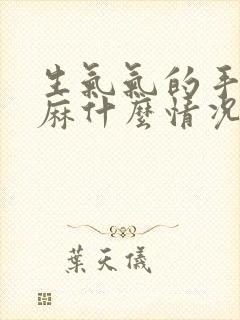 生氣氣的手
麻什麼情況
葉天儀